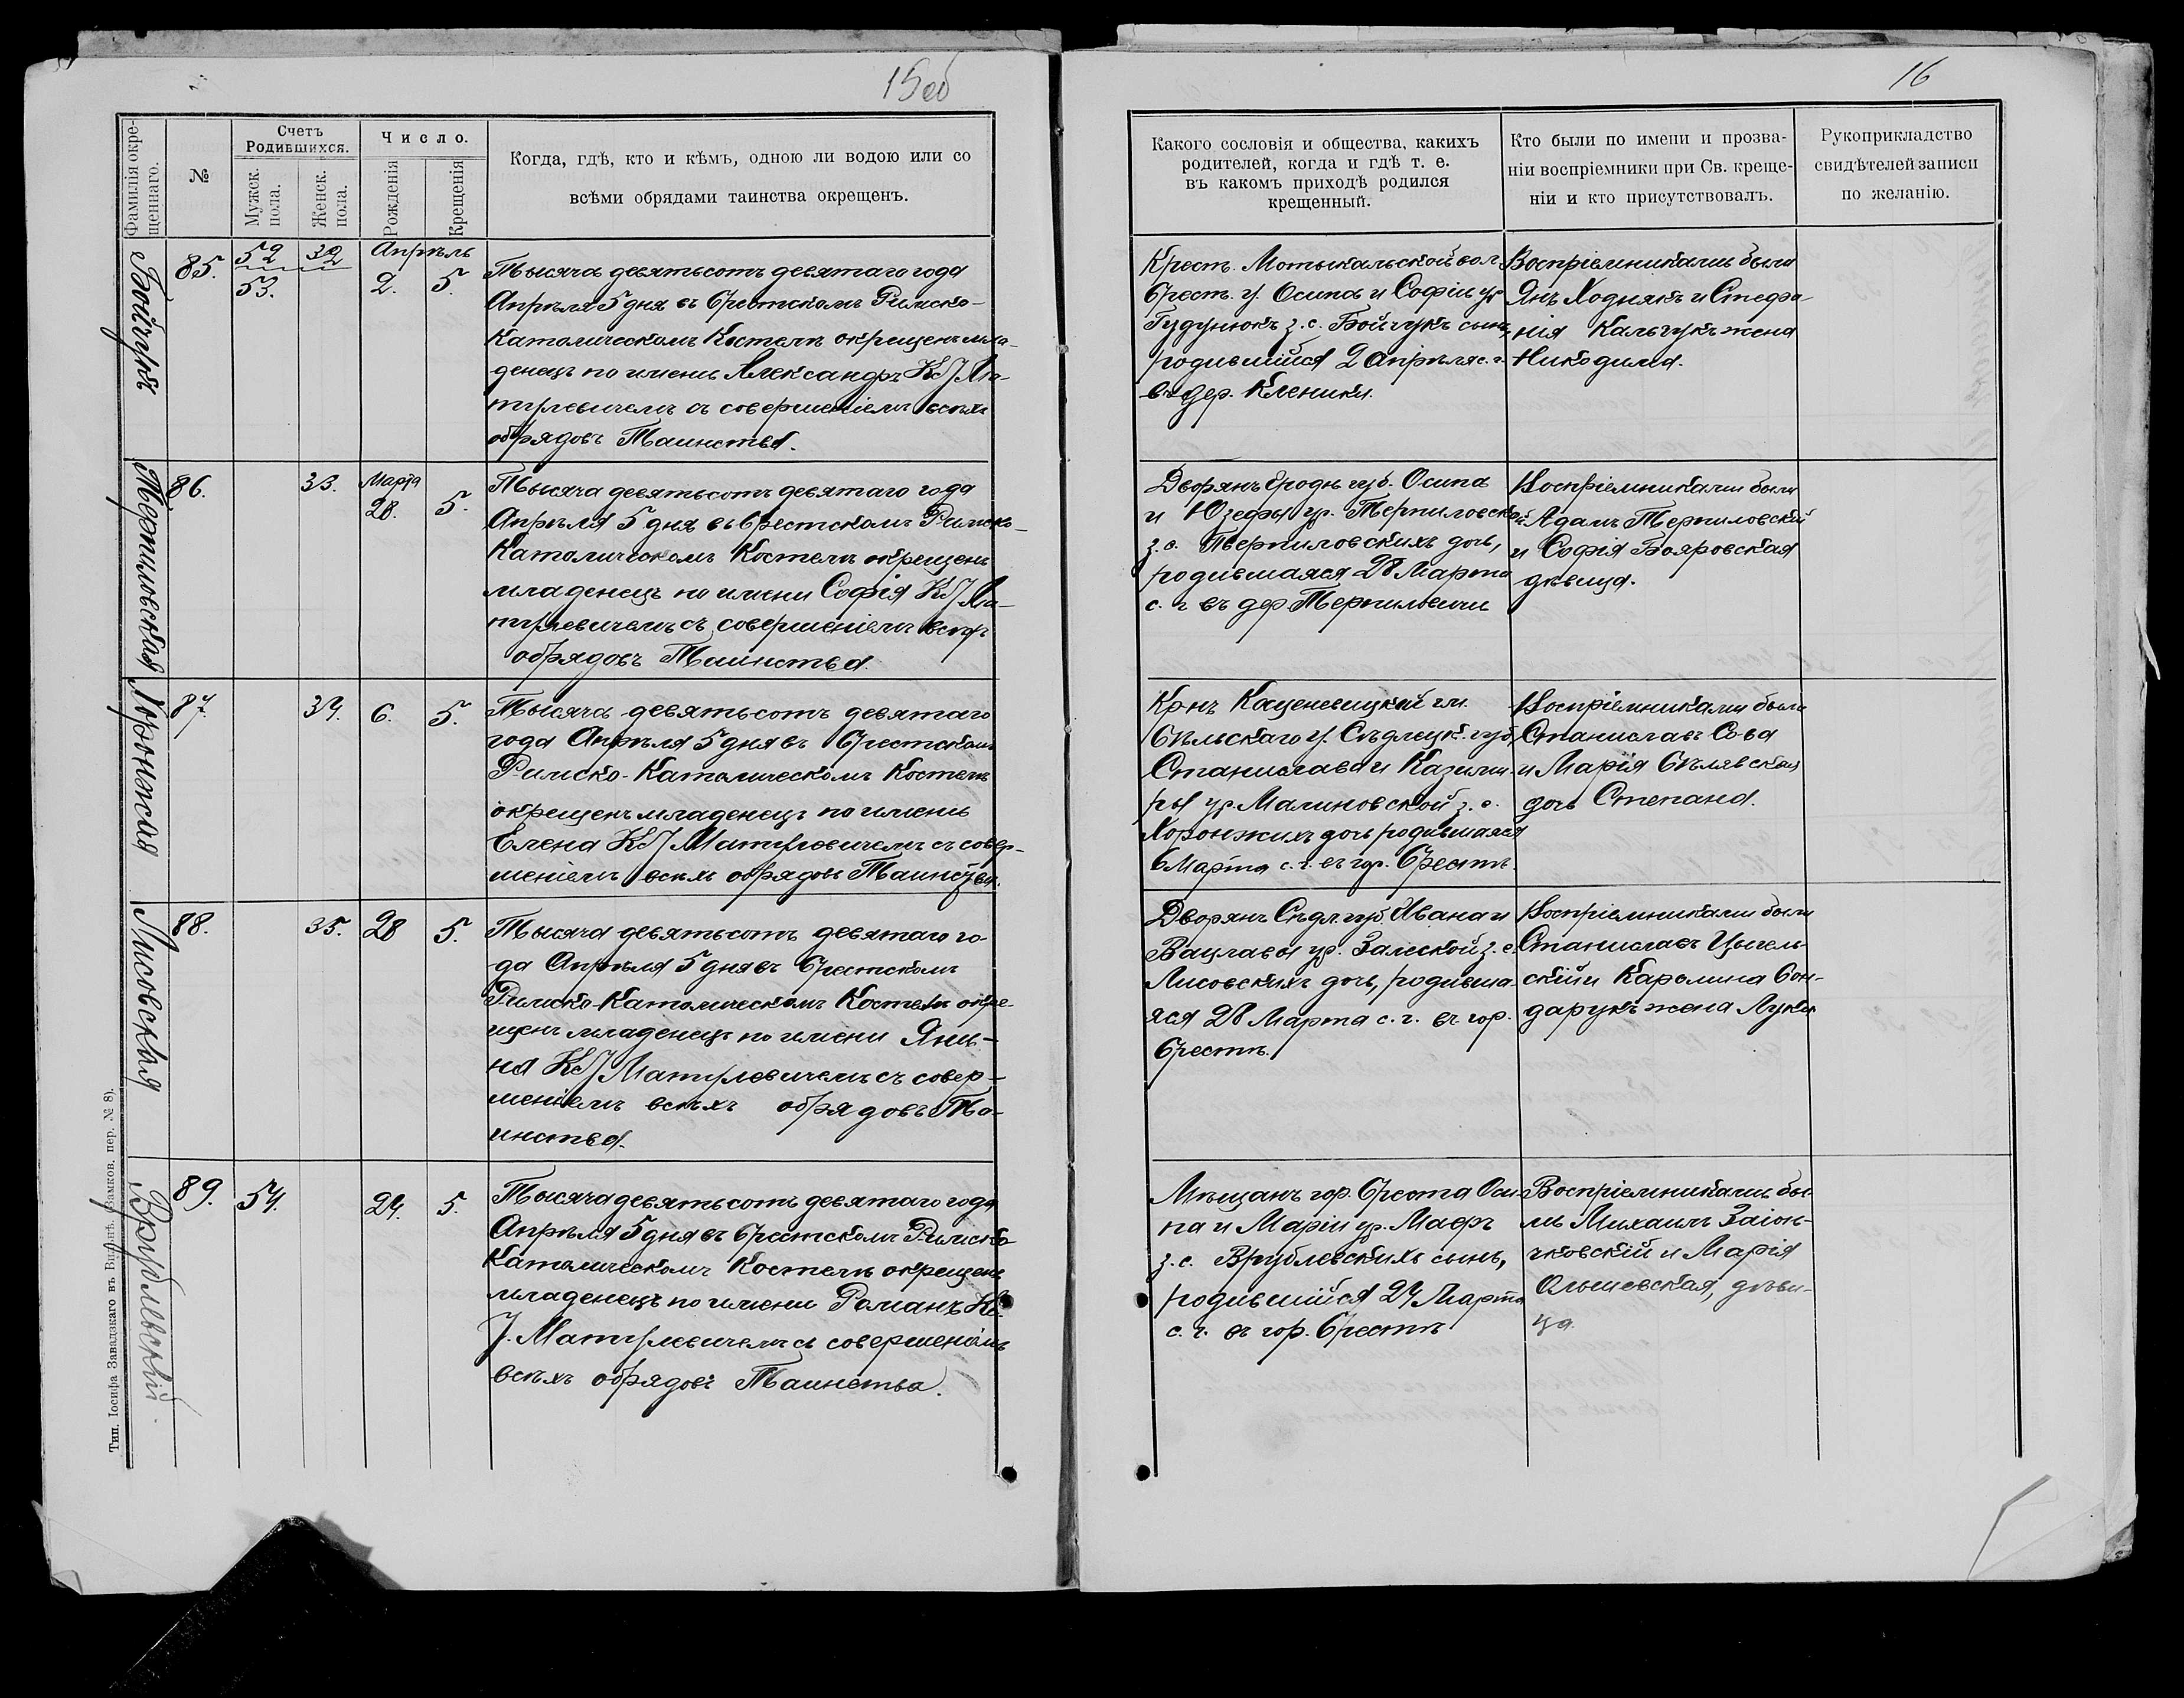 15об
Фамилія окре-
щеннаго.
№
Счетъ
Родившихся.
Мужск.
пола.
Женск.
пола.
Число.
Рожденія
Крещенія
Когда, гдѣ, кто и кѣмъ, одною ли водою или со
всѣми обрядами таинства окрещенъ.
Бойчукъ
85.
52
53.
32
Апрѣль
2.
5.
Тысяча девятьсотъ девятаго года
Апрѣля 5 дня въ Брестскомъ Римско-
Католическомъ Костелѣ окрещенъ мла-
денецъ по имени Александръ К. І. Ма-
тулевичемъ съ совершеніемъ всѣхъ
обрядовъ Таинства.
Терпиловская
86.
33.
Марта
28.
5.
Тысяча девятьсотъ девятаго года
Апрѣля 5 дня въ Брестскомъ Римско-
Католическомъ Костелѣ окрещенъ
младенецъ по имени Софія К. І. Ма-
тулевичемъ съ совершеніемъ всѣхъ
обрядовъ Таинства.
Хоронжая
87.
34.
6.
5.
Тысяча девятьсотъ девятаго
года Апрѣля 5 дня въ Брестскомъ
Римско-Католическомъ Костелѣ
окрещенъ младенецъ по имени
Елена К. І. Матулевичемъ съ совер-
шеніемъ всѣхъ обрядовъ Таинства.
Лисовская
88.
35.
28
5.
Тысяча девятьсотъ девятаго го-
да Апрѣля 5 дня въ Брестскомъ
Римско-Католическомъ Костелѣ окре-
щенъ младенецъ по имени Яни-
на К. І. Матулевичемъ съ совер-
шеніемъ всѣхъ обрядовъ Та-
инства.
Врублевскій.
89.
54.
24.
5.
Тысяча девятьсотъ девятаго года
Апрѣля 5 дня въ Брестскомъ Римско
Католическомъ Костелѣ окрещенъ
младенецъ по имени Романъ К.
І. Матулевичемъ съ совершеніемъ
всѣхъ обрядовъ Таинства.
Тип. Іосифа Завадзкаго въ Вильнѣ. (Замков. пер. № 8).
16
Какого сословія и общества, какихъ
родителей, когда и гдѣ т. е.
въ какомъ приходѣ родился
крещенный.
Кто были по имени и прозва-
ніи воспріемники при Св. креще-
ніи и кто присутствовалъ.
Рукоприкладство
свидѣтелей записи
по желанію.
Крест. Мотыкальской вол.
Брест. у. Осипа и Софіи ур.
Гудунюкъ з. с. Бойчукъ сынъ,
родившійся 2 Апрѣля с. г.
въ дер. Кленики.
Воспріемниками были
Янъ Ходнякъ и Стефа-
нія Кальчукъ жена
Никодима.
Дворянъ Гродн. губ. Осипа
и Юзефы ур. Терпиловской
з. с. Терпиловскихъ дочь,
родившаяся 28 Марта
с. г. въ дер. Терпиловичи
Воспріемниками были
Адамъ Терпиловскій
и Софія Бояровская
дѣвица.
Кр-нъ Каценевицкой гм.
Бѣльскаго у. Сѣдлецк. губ.
Станислава и Казими-
ры ур. Малиновской з. с.
Хоронжихъ дочь родившаяся
6 Марта с. г. въ гор. Брестѣ.
Воспріемниками были
Станиславъ Сова
и Марія Бѣлявская
дочь Степана.
Дворянъ Сѣдл. губ. Ивана и
Вацлавы ур. Залеской з. с.
Лисовскихъ дочь, родивша-
яся 28 Марта с. г. въ гор.
Брестѣ.
Воспріемниками были
Станиславъ Цыгель-
скій и Каролина Бон-
дарукъ жена Луки
Мѣщанъ гор. Бреста Оси-
па и Маріи ур. Маеръ
з. с. Врублевскихъ сынъ,
родившійся 24 Марта
с. г. въ гор. Брестѣ
Воспріемниками бы-
ли Михаилъ Заіон-
чковскій и Марія
Ольшевская, дѣви-
ца.